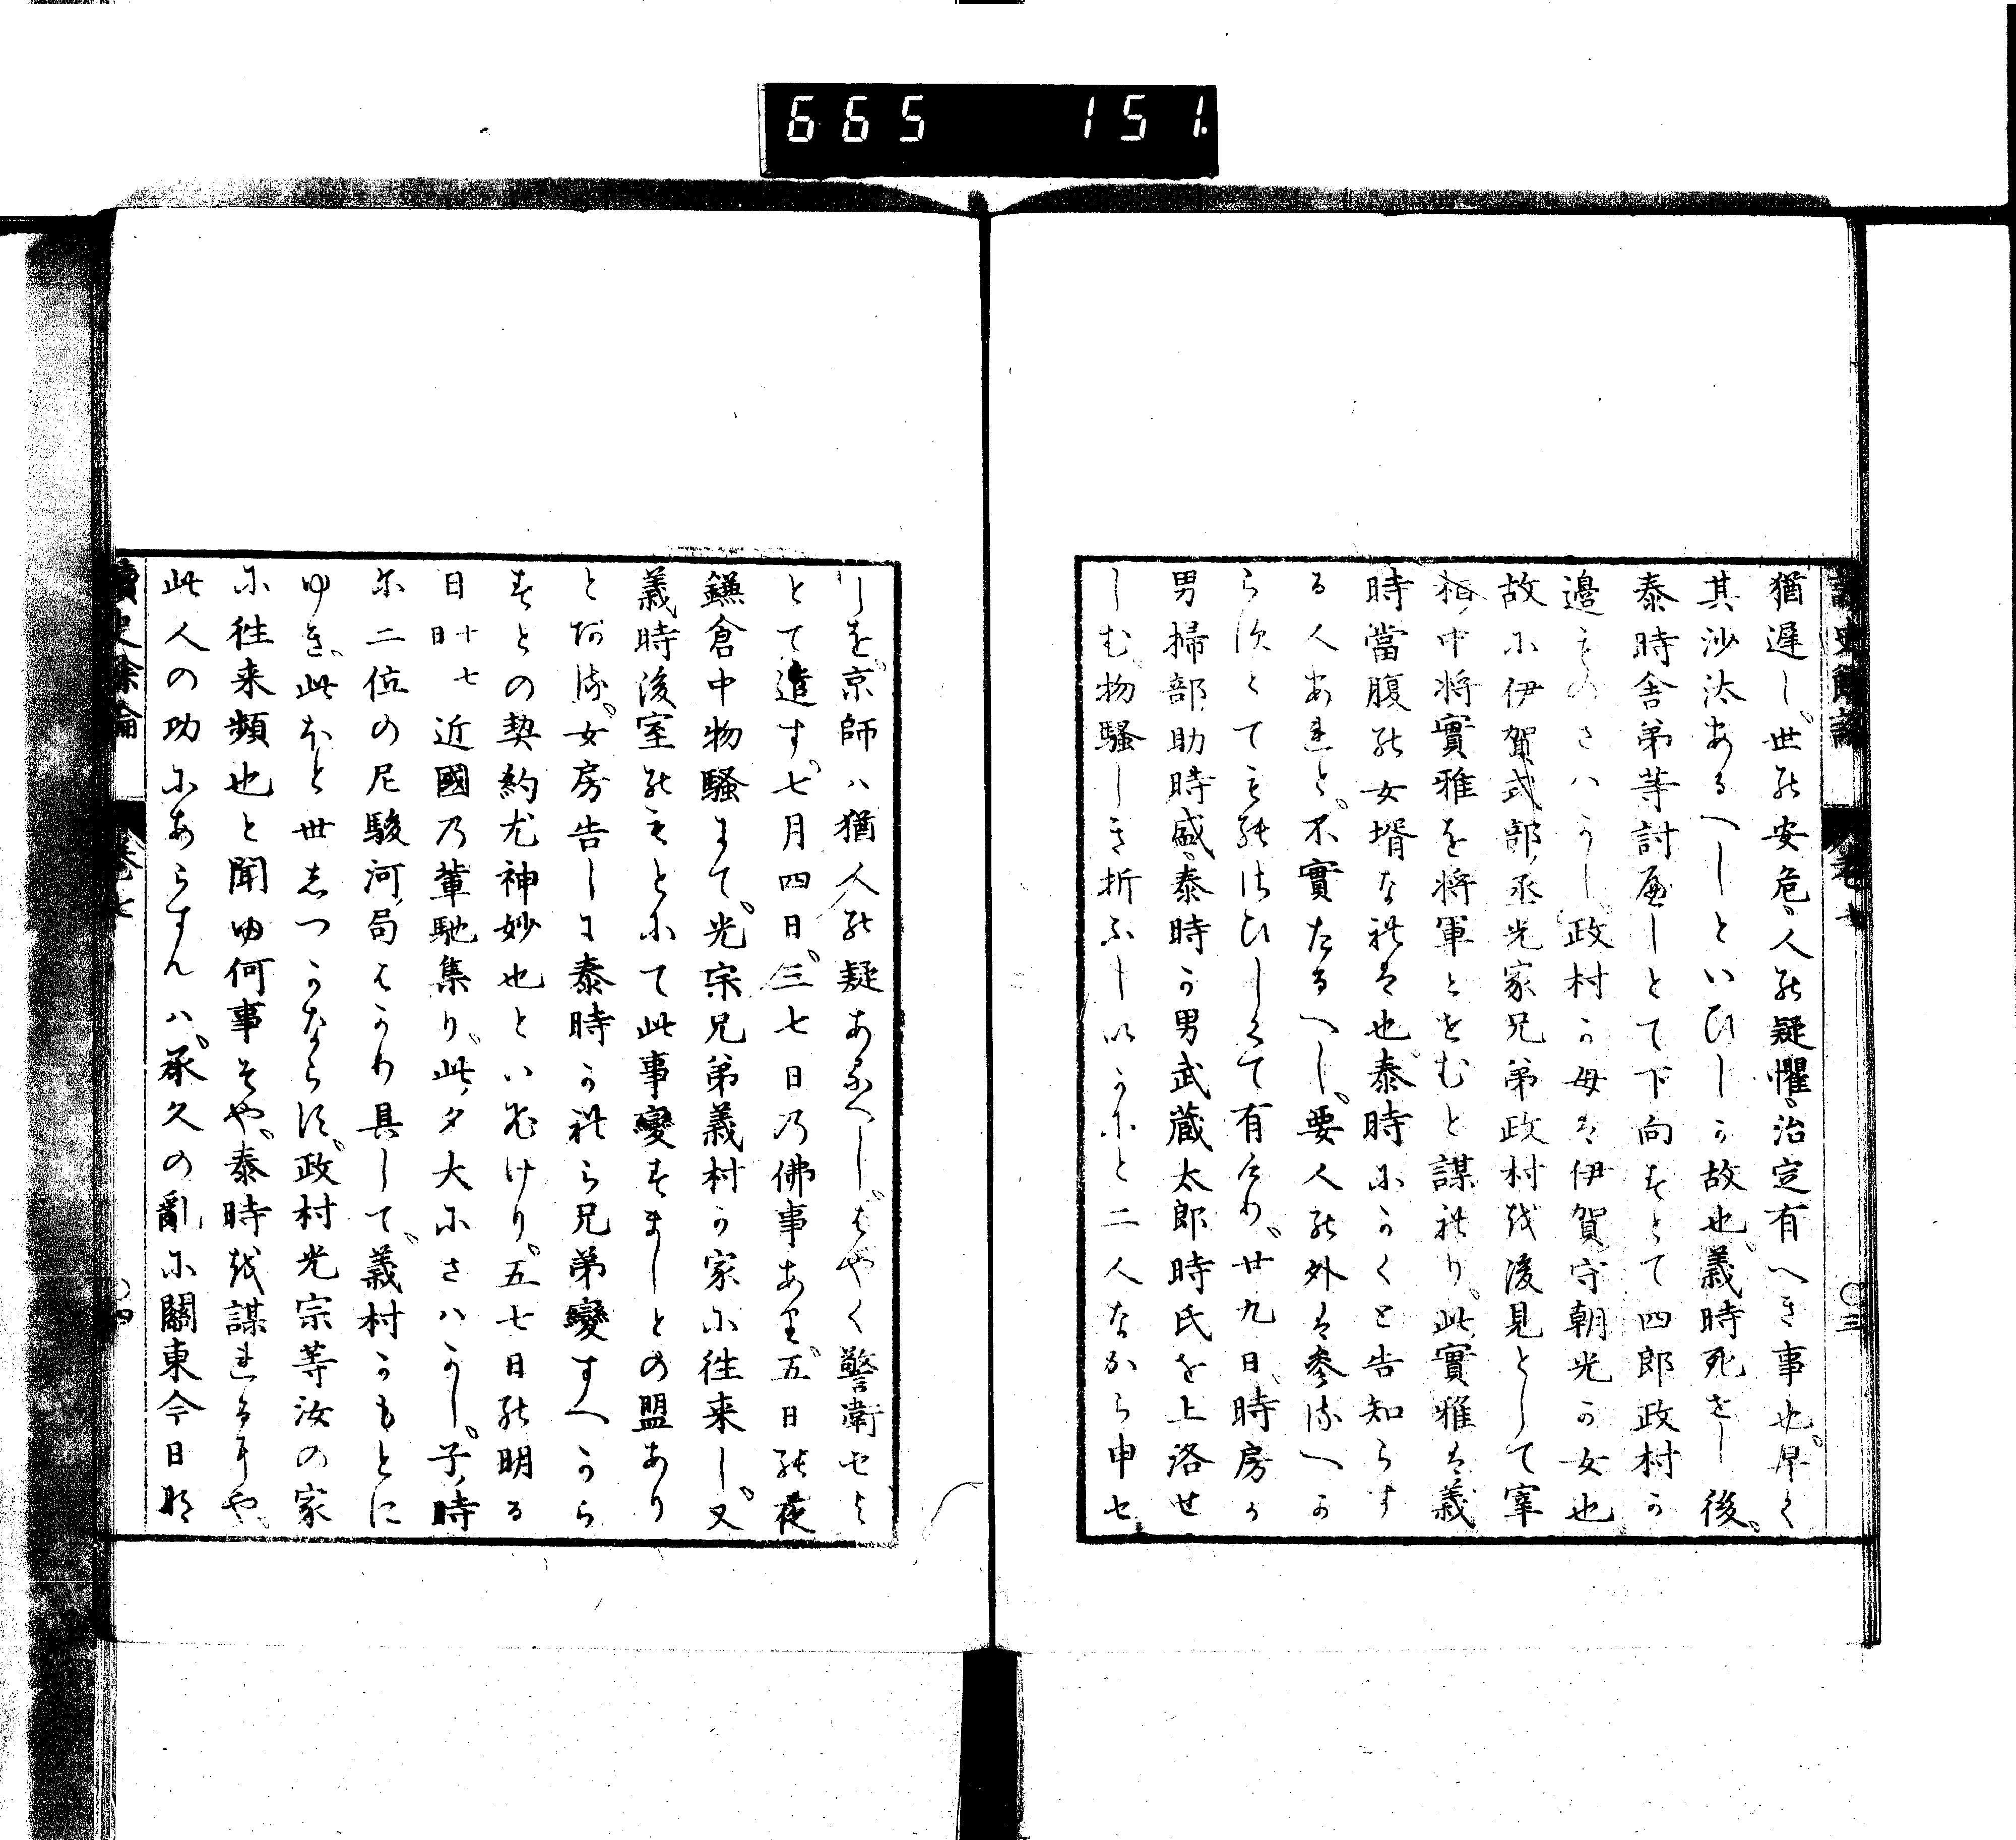 665 151.
讀史餘論 卷七 〇三
猶遅し世の安危人の疑懼治定有へき事也早く
其沙汰あるへしといひしか故也義時死せし後
泰時舎弟等討へしとて下向すとて四郎政村か
邊ものさハかし政村か母は伊賀守朝光か女也
故に伊賀式部丞光家兄弟政村を後見として宰
相中将實雅を将軍とせむと謀れり此實雅は義
時當腹の女壻なれは也泰時にかくと告知らす
る人あれと不實たるへし要人の外は参るへか
らすとてもてはひしくて有けり廿九日時房か
男掃部助時盛泰時か男武蔵太郎時氏を上洛せ
しむ物騒しき折ふしいかにと二人なから申せ
しを京師ハ猶人の疑あるへしはやく警衛せよ
とて遣す七月四日三七日の佛事あり五日の夜
鎌倉中物騒にて光宗兄弟義村か家に往来し又
義時後室のもとにて此事變すましとの盟あり
とある女房告しに泰時かれら兄弟變すへから
すとの契約尤神妙也といひけり五七日の明る
日十七日近國の輩馳集り此夕大にさハかし子時
に二位の尼駿河局はかり具して義村かもとに
ゆき此ほと世しつかならす政村光宗等汝の家
に往来頻也と聞ゆ何事そや泰時を謀れるにや
此人の功にあらすんハ承久の亂に關東今日な
讀史餘論 卷七 〇四